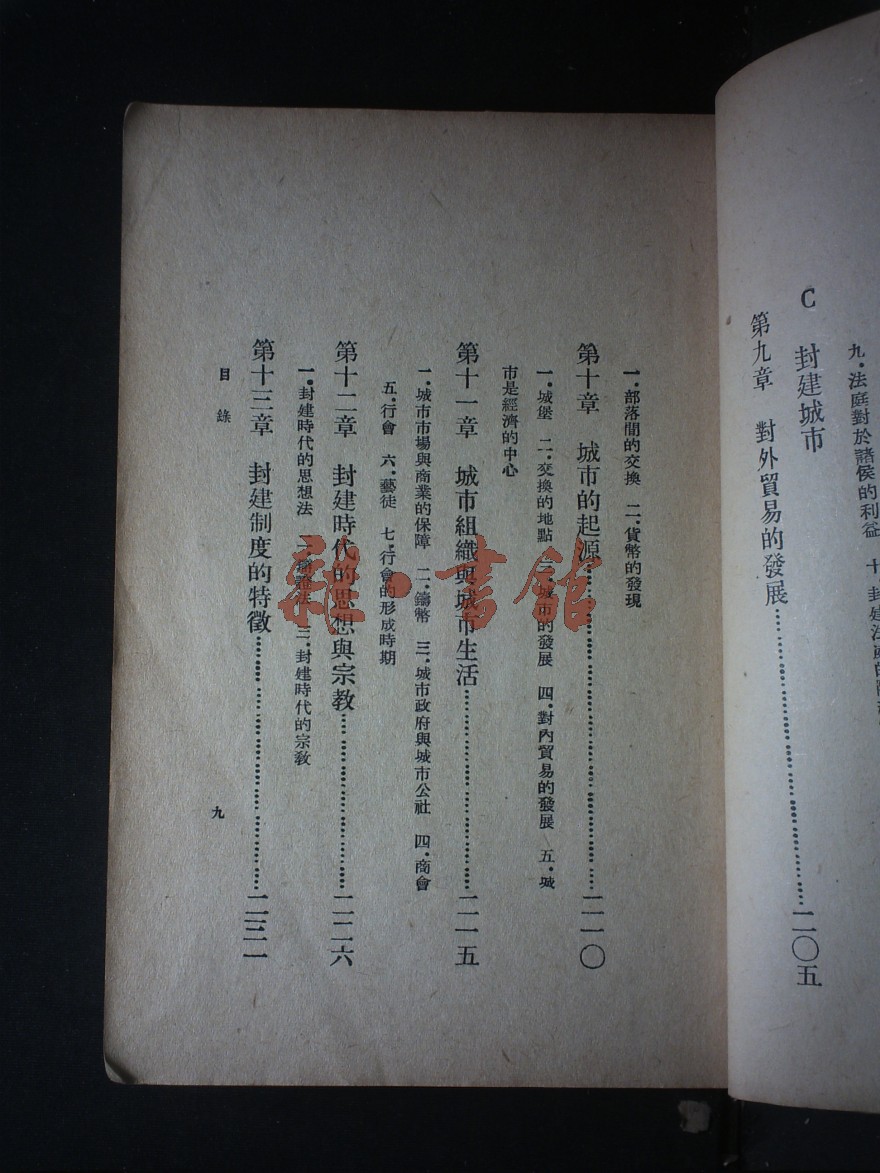 九．法庭對於諸侯的利益 十．封建法
C 封建城市
第九章 對外貿易的發展……二〇五
一．部落間的交換 二．貨幣的發現
第十章 城市的起源……二一〇
一．城堡 二．交換的地點 三．城市的發展 四．對內貿易的發展 五．城
市是經濟的中心
第十一章 城市組織與城市生活……二一五
一．城市市場與商業的保障 二．鑄幣 三．城市政府與城市公社 四．商會
五．行會 六．藝徒 七．行會的形成時期
第十二章 封建時代的思想與宗教……二二六
一．封建時代的思想法 二 法 三．封建時代的宗教
第十三章 封建制度的特徵……二三一
目錄
九
雜·書館